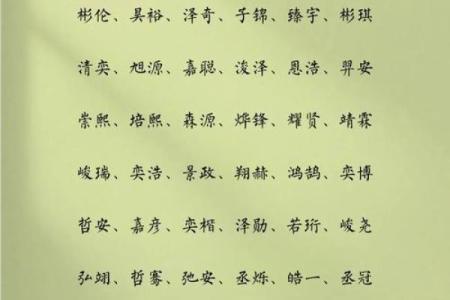 彬伦、昊裕、泽奇、子锦、臻宇、彬琪
清奕、旭源、嘉聪、浚泽、恩浩、羿安
崇熙、培熙、森源、烨锋、耀贤、靖霖
峻瑞、奕浩、景政、翔赫、鸿鹄、奕博
哲安、嘉彦、奕楷、泽勋、若珩、峻尧
弘翊、哲骞、弛安、丞烁、皓一、丞冠